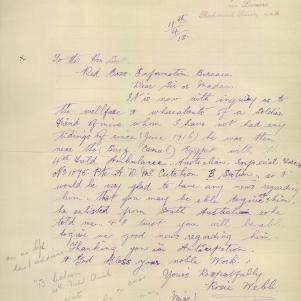 11th
4/18
x
To the Hon Sect.
Red Cross Information Bureau
Dear Sir or Madam
It is now with inquiry as to
the wellfare & whereabouts of a Soldier
friend of mine whom I have not had any
tidings of since (June 1916) he was then
near the (Suez Canal) Egypt with the
4th Field Ambulance Australian Imperial
Pte A. D. Mc Cutcheon B. Section, so I
would be very glad to have any news regarding
him, that you may be able to give me,
he enlisted from South Australia so he
told me, & I trust you will be able
to give me good news regarding him.
Thanking you in Anticipation
& God Bless your noble Work.
Yours Respectfully.
Rosie Webb
Miss
"B" Section
4th Field Amb